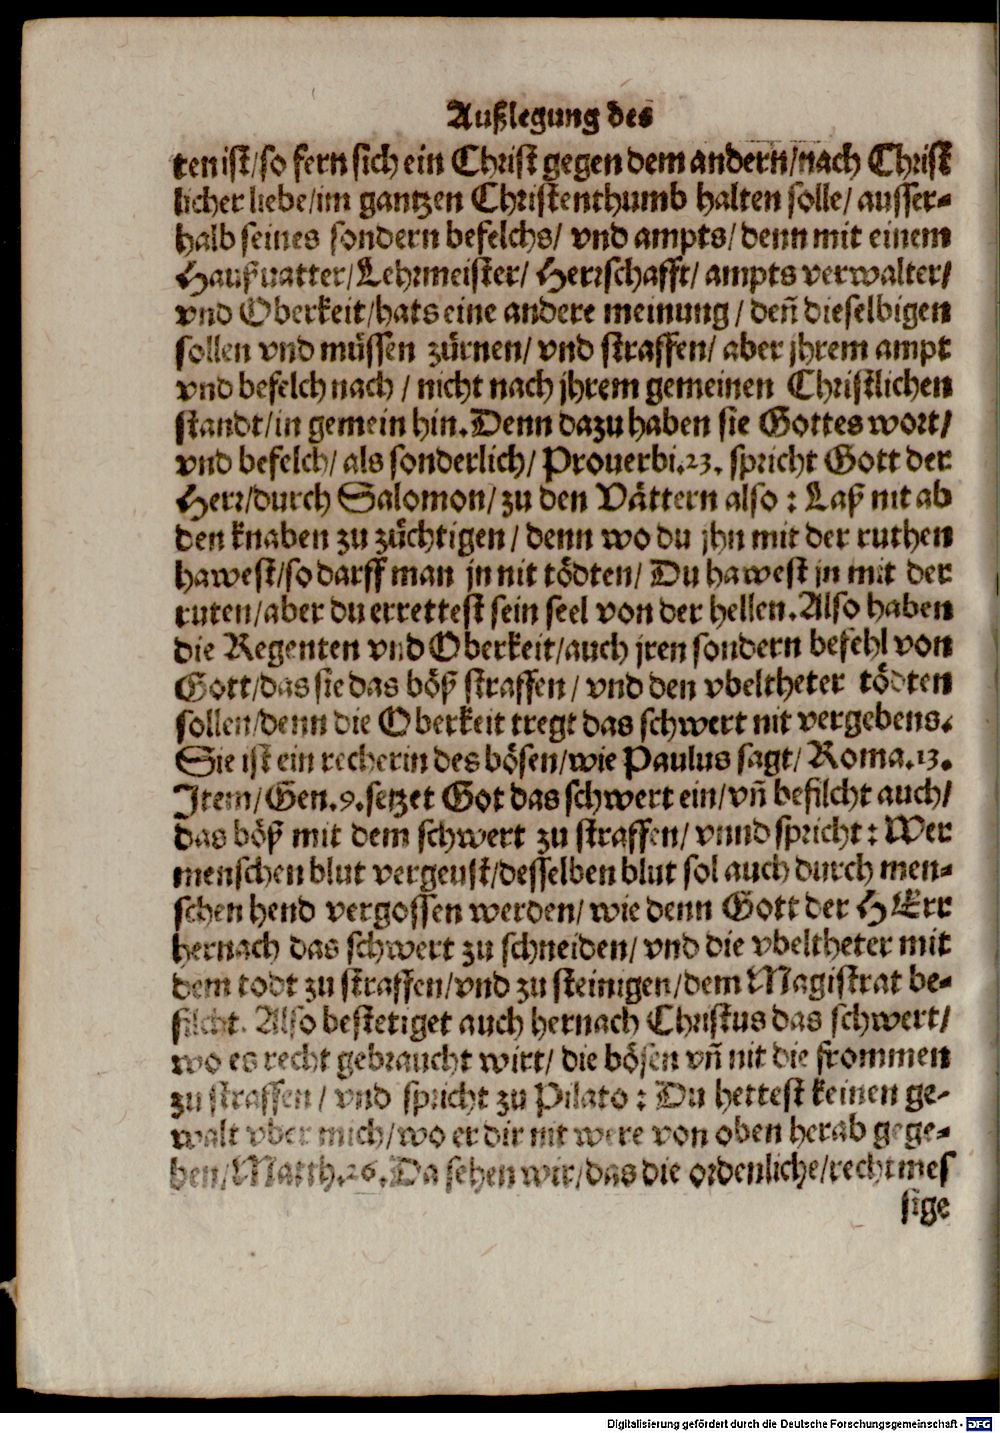 Außlegung des
ten ist/so fern sich ein Christ gegen dem andern/nach Christ
licher liebe/im gantzen Christenthumb halten solle/ ausser-
halb seines sondern befelchs/ vnd ampts/ denn mit einem
Haußuatter/ Lehrmeister/ Herrschafft/ ampts verwalter/
vnd Oberkeit/hats eine andere meinung / deñ dieselbigen
sollen vnd müssen zürnen/ vnd straffen/ aber jhrem ampt
vnd befelch nach / nicht nach jhrem gemeinen Christlichen
standt/in gemein hin. Denn dazu haben sie Gottes wort/
vnd befelch/ als sonderlich/ Prouerbi.23. spricht Gott der
Herr/durch Salomon/ zu den Vättern also : Laß nit ab
den knaben zu züchtigen / denn wo du jhn mit der ruthen
hawest/so darff man jn nit tödten/ Du hawest jn mit der
ruten/aber du errettest sein seel von der hellen. Also haben
die Regenten vnd Oberkeit/auch jren sondern befehl von
Gott/das sie das böß straffen / vnd den vbeltheter tödten
sollen/denn die Oberkeit tregt das schwert nit vergebens.
Sie ist ein recherin des bösen/wie Paulus sagt/ Roma.13.
Item/ Gen.9.setzet Got das schwert ein/ vñ befilcht auch/
das böß mit dem schwert zu straffen/ vnnd spricht : Wer
menschen blut vergeust/desselben blut sol auch durch men-
schen hend vergossen werden/ wie denn Gott der HErr
hernach das schwert zu schneiden/ vnd die vbeltheter mit
dem todt zu straffen/vnd zu steinigen/dem Magistrat be-
filcht. Also bestetiget auch hernach Christus das schwert/
wo es recht gebraucht wirt/ die bösen vñ nit die frommen
zu straffen / vnd spricht zu Pilato : Du hettest keinen ge-
walt vber mich/wo er dir nit were von oben herab gege-
ben/Matth.26. Da sehen wir/das die ordenliche/rechtmes
sige
Digitalisierung gefördert durch die Deutsche Forschungsgemeinschaft - DFG